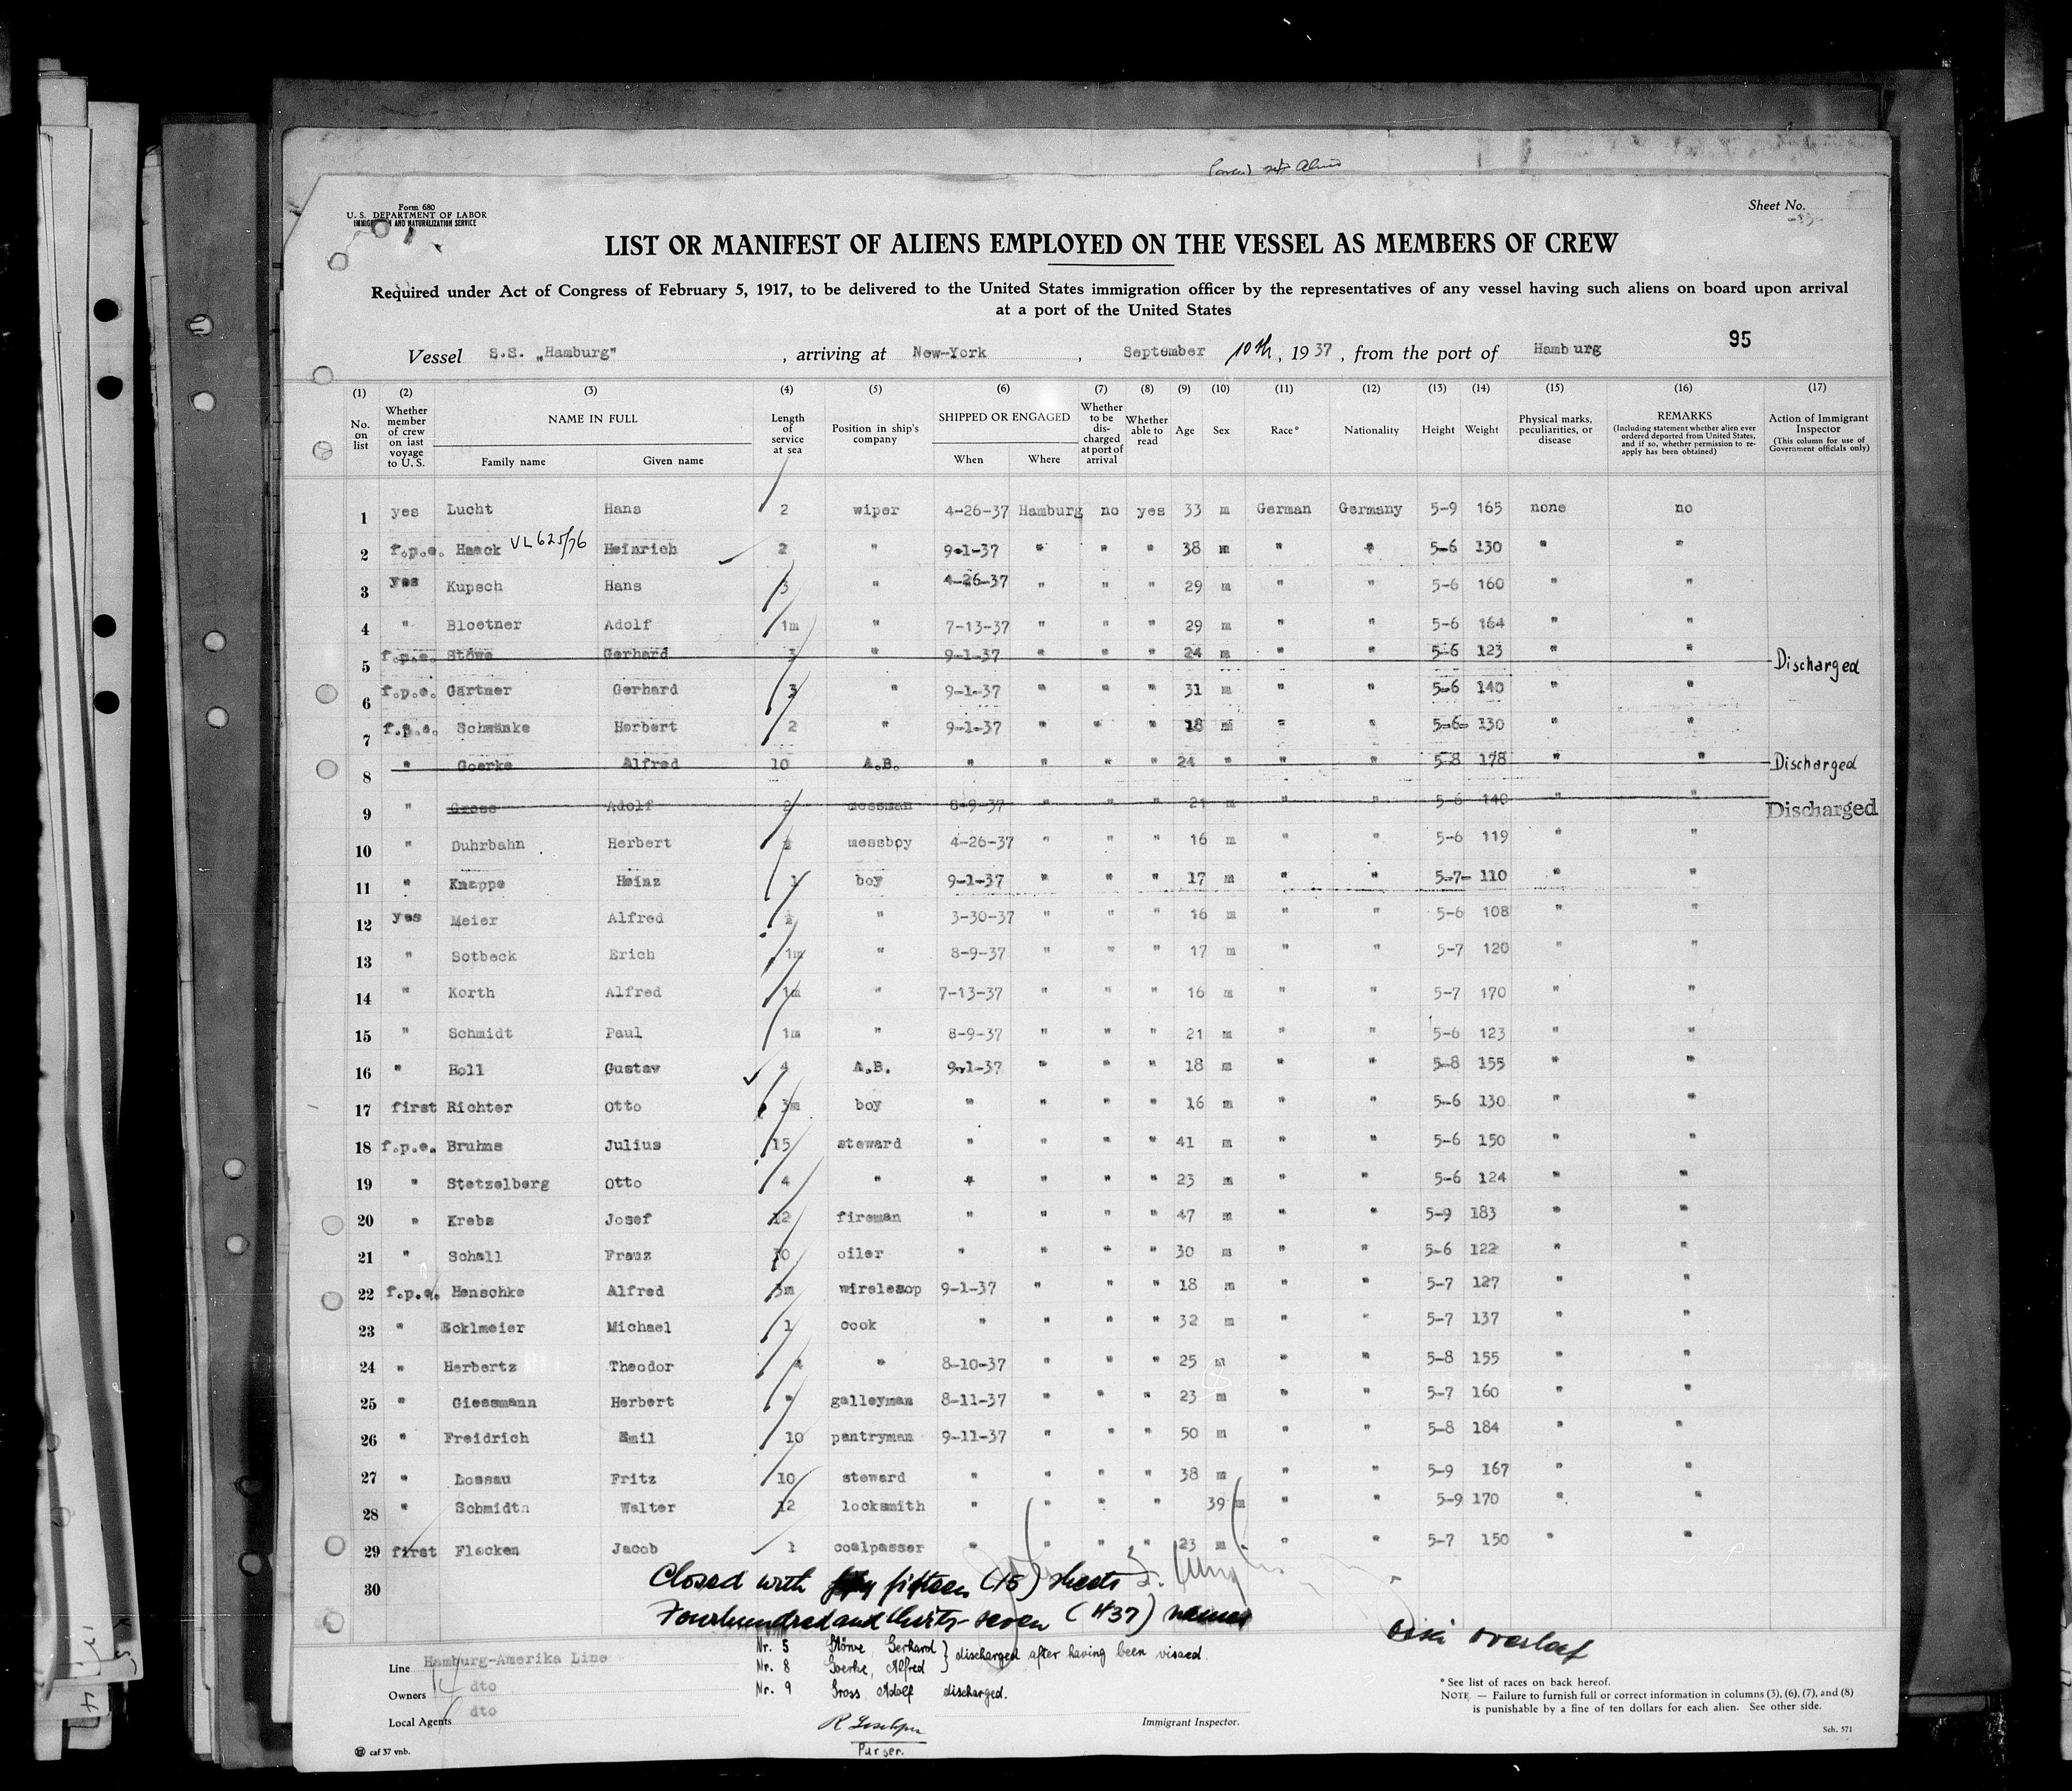 Form 680
U. S. DEPARTMENT OF LABOR
IMMIGRATION AND NATURALIZATION SERVICE
Sheet No.
LIST OR MANIFEST OF ALIENS EMPLOYED ON THE VESSEL AS MEMBERS OF CREW
Required under Act of Congress of February 5, 1917, to be delivered to the United States immigration officer by the representatives of any vessel having such aliens on board upon arrival
at a port of the United States
95
Vessel S.S. „Hamburg" , arriving at New-York , September 10th, 1937, from the port of Hamburg
(1) (2) (3) (4) (5) (6) (7) (8) (9) (10) (11) (12) (13) (14) (15) (16) (17)
No. on list Whether member of crew on last voyage to U. S. NAME IN FULL Family name Given name Length of service at sea Position in ship's company SHIPPED OR ENGAGED When Where Whether to be discharged at port of arrival Whether able to read Age Sex Race* Nationality Height Weight Physical marks, peculiarities, or disease REMARKS (Including statement whether alien ever ordered deported from United States, and if so, whether permission to re-apply has been obtained) Action of Immigrant Inspector (This column for use of Government officials only)
1 yes Lucht Hans 2 wiper 4-26-37 Hamburg no yes 33 m German Germany 5-9 165 none no
2 f.p.e. Haack VL625/76 Heinrich 2 " 9-1-37 " " " 38 m " " 5-6 130 " "
3 yes Kupsch Hans 3 " 4-26-37 " " " 29 m " " 5-6 160 " "
4 " Bloetner Adolf 1m " 7-13-37 " " " 29 m " " 5-6 164 " "
5 f.p.e. Stöwe Gerhard 3 " 9-1-37 " " " 24 m " " 5-6 123 " " Discharged
6 f.p.e. Gärtner Gerhard 3 " 9-1-37 " " " 31 m " " 5-6 140 " "
7 f.p.e. Schwänke Herbert 2 " 9-1-37 " " " 18 m " " 5-6- 130 " "
8 " Goerke Alfred 10 A.B. " " " " 24 " " " 5-8 178 " " Discharged
9 " Gross Adolf 2 messman 8-9-37 " " " 21 m " " 5-6 140 " " Discharged
10 " Duhrbahn Herbert messboy 4-26-37 " " " 16 m " " 5-6 119 " "
11 " Knappe Heinz 1 boy 9-1-37 " " " 17 m " " 5-7- 110 " "
12 yes Meier Alfred " 3-30-37 " " " 16 m " " 5-6 108 " "
13 " Sotbeck Erich 1m " 8-9-37 " " " 17 m " " 5-7 120 " "
14 " Korth Alfred 1m " 7-13-37 " " " 16 m " " 5-7 170 " "
15 " Schmidt Paul 1m " 8-9-37 " " " 21 m " " 5-6 123 " "
16 " Holl Gustav 4 A.B. 9-1-37 " " " 18 m " " 5-8 155 " "
17 first Richter Otto 3m boy " " " " 16 m " " 5-6 130 " "
18 f.p.e. Bruhns Julius 15 steward " " " " 41 m " " 5-6 150 " "
19 " Stetzelberg Otto 4 " " " " " 23 m " " 5-6 124 " "
20 " Krebs Josef 12 fireman " " " " 47 m " " 5-9 183 " "
21 " Schall Franz 10 oiler " " " " 30 m " " 5-6 122 " "
22 f.p.e. Henschke Alfred 3m wirelesop 9-1-37 " " " 18 m " " 5-7 127 " "
23 " Ecklmeier Michael 1 cook " " " " 32 m " " 5-7 137 " "
24 " Herbertz Theodor 4 " 8-10-37 " " " 25 m " " 5-8 155 " "
25 " Giessmann Herbert " galleyman 8-11-37 " " " 23 m " " 5-7 160 " "
26 " Freidrich Emil 10 pantryman 9-11-37 " " " 50 m " " 5-8 184 " "
27 " Lossau Fritz 10 steward " " " " 38 m " " 5-9 167 " "
28 " Schmidtn Walter 12 locksmith " " " " 39 m " " 5-9 170 " "
29 first Flecken Jacob 1 coalpasser " " " " 23 m " " 5-7 150 " "
30
Closed with fifteen (15) sheets
Fourhundred and thirty-seven (437) names
overleaf
Line Hamburg-Amerika Line
Owners dto
Local Agents dto
Nr. 5 Stöwe, Gerhard } discharged after having been visaed.
Nr. 8 Goerke, Alfred }
Nr. 9 Gross, Adolf discharged.
Purser.
Immigrant Inspector.
* See list of races on back hereof.
NOTE. — Failure to furnish full or correct information in columns (3), (6), (7), and (8)
is punishable by a fine of ten dollars for each alien. See other side.
Sch. 571
caf 37 vnb.